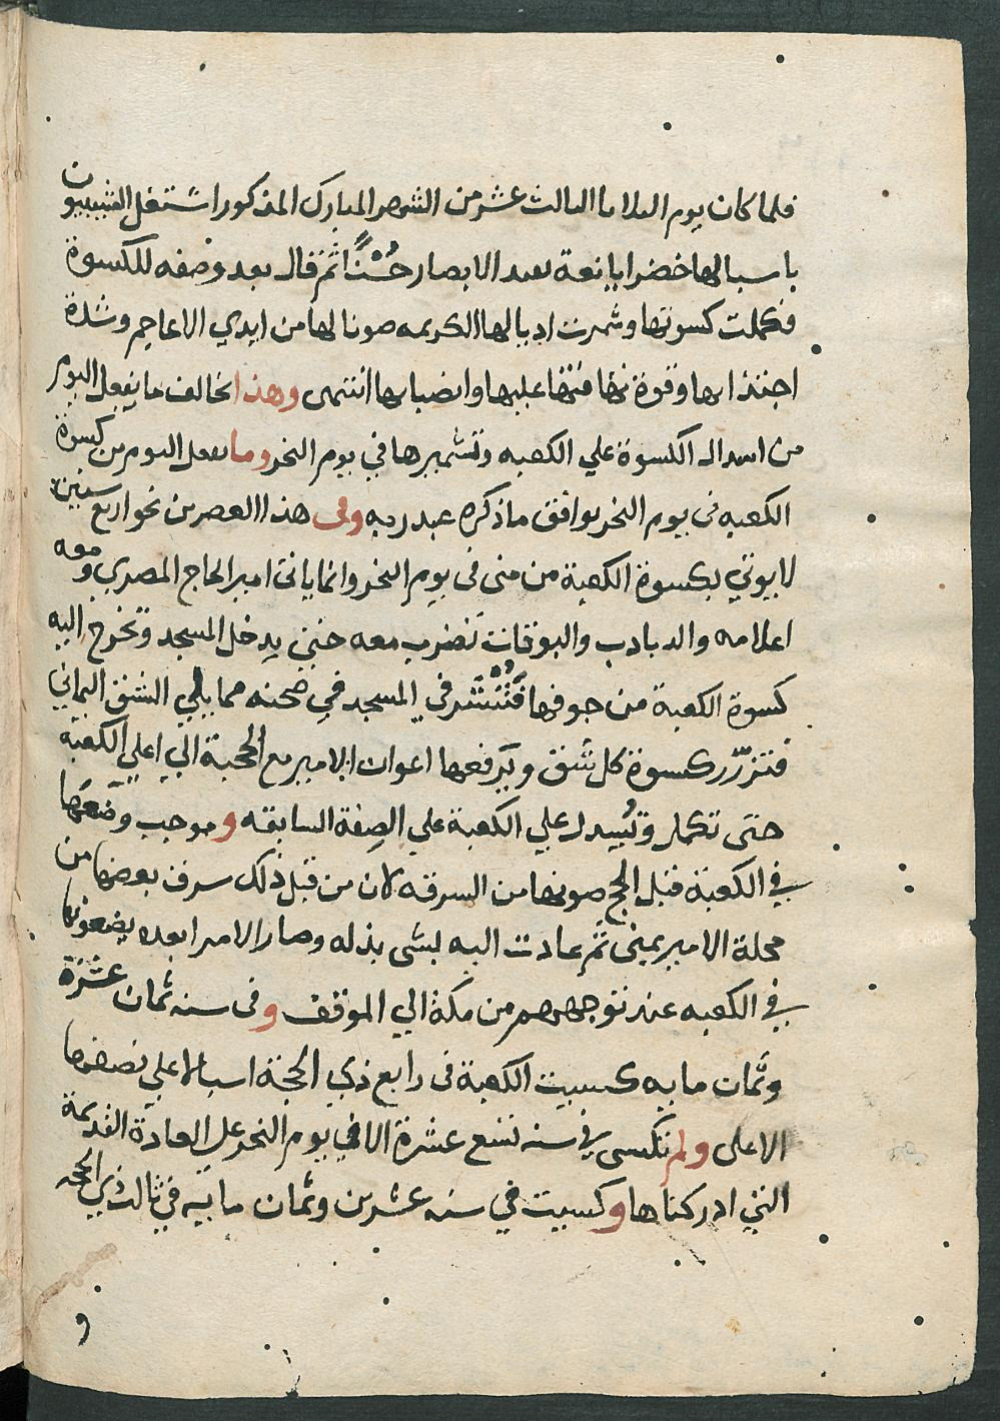 فلما كان يوم الثلاثا الثالث عشر من الشهر المبارك المذكور اشتغل الشيبيون
باسبالها خضرا يانعة تقيد الابصار حُسْنًا ثم قال بعد وصفه للكسوة
فكملت كسوتها وشمرت اذيالها الكريمه صونا لها من ايدي الاعاجم وشدة
اجتذابها وقوة تهافتها عليها وانصبابها انتهى وهذا يخالف ما يفعل اليوم
من اسدال الكسوة علي الكعبه وتشميرها في يوم النحر وما يفعل اليوم من كسوة
الكعبه في يوم النحر يوافق ما ذكره عبد ربه وفى هذا العصر من نحو اربع سنين
لا يوتي بكسوة الكعبة من منى فى يوم النحر وانما ياتى امير الحاج المصري ومعه
اعلامه والدبادب والبوقات تضرب معه حتى يدخل المسجد وتخرج اليه
كسوة الكعبة من جوفها فتُنْشَر في المسجد في صحنه مما يلي الشق اليماني
فتزرّر كسوة كل شق ويرفعها اعوان الامير مع الحجبة الي اعلي الكعبة
حتى تكمل وتُسدل علي الكعبة علي الصفة السابقه وموجب وضعها
في الكعبة قبل الحج صونها من السرقه لان من قبل ذلك سرق بعضها من
محلة الامير بمنى ثم عادت اليه بشى بذله وصار الامرا بعده يضعونها
في الكعبه عند توجههم من مكة الي الموقف وفى سنه ثمان عشرة
وثمان مايه كسيت الكعبة فى رابع ذي الحجة اسبالا علي نصفها
الاعلى ولم تكسى في سنه تسع عشرة الا في يوم النحر على العادة القديمة
التي ادركناها وكسيت في سنه عشرين وثمان مايه في ثالث ذي الحجه
و